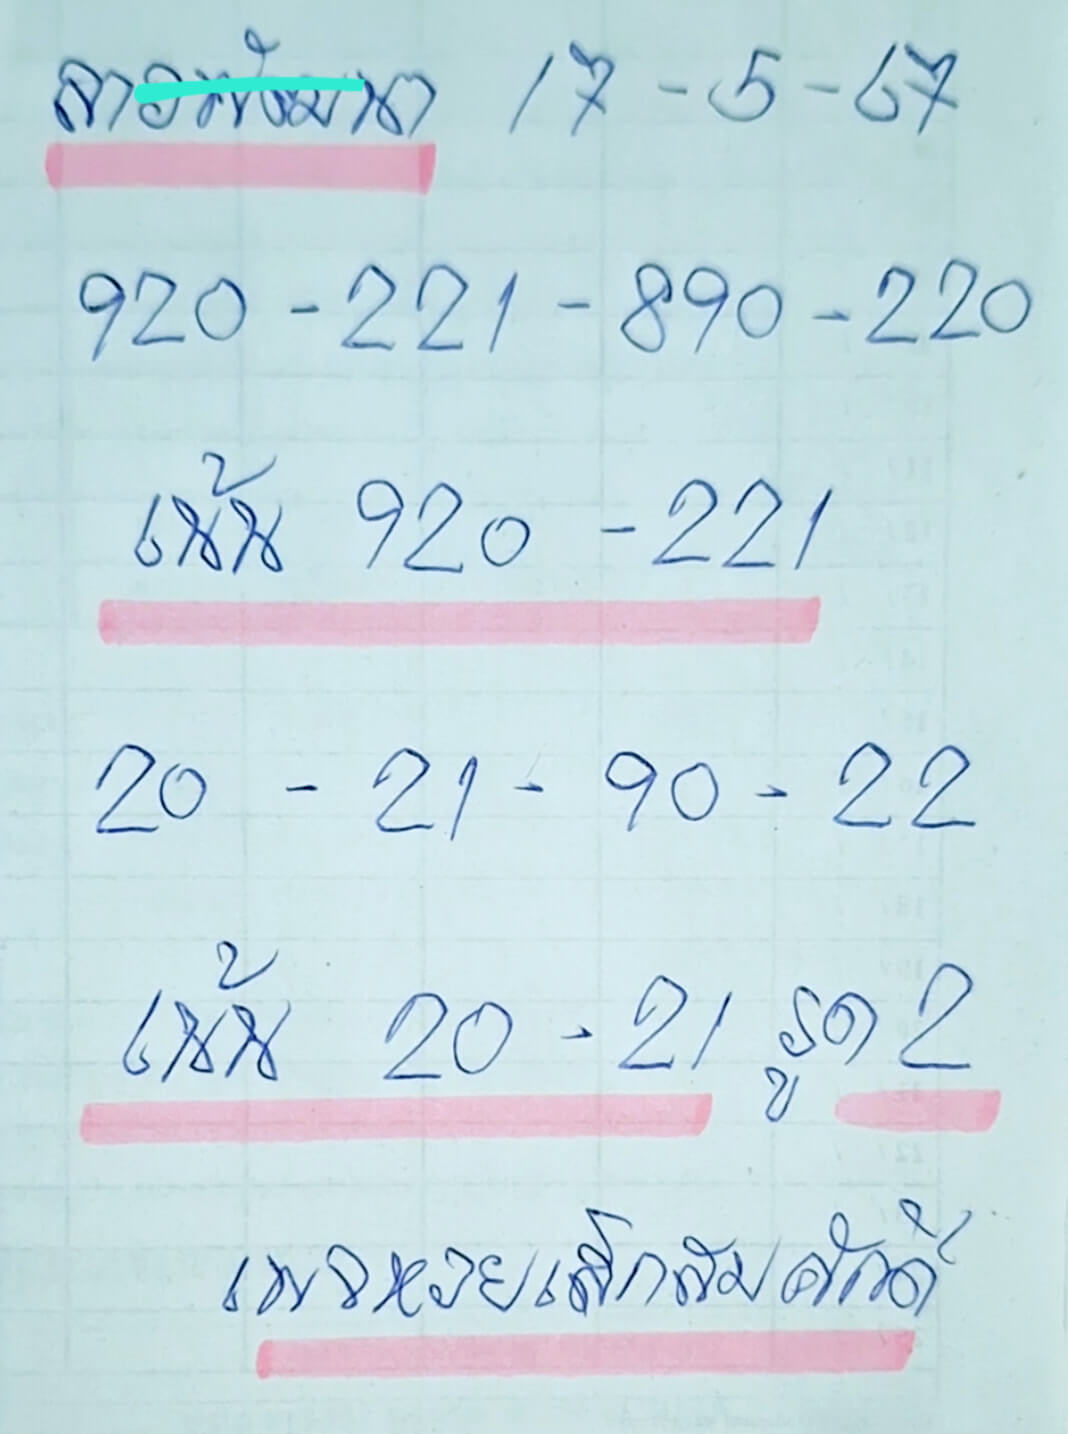 ลาวพัฒนา 17-5-67
920-221-890-220
เน้น 920-221
20-21-90-22
เน้น 20-21 รูด 2
เพจหวยเล็กสมศักดิ์